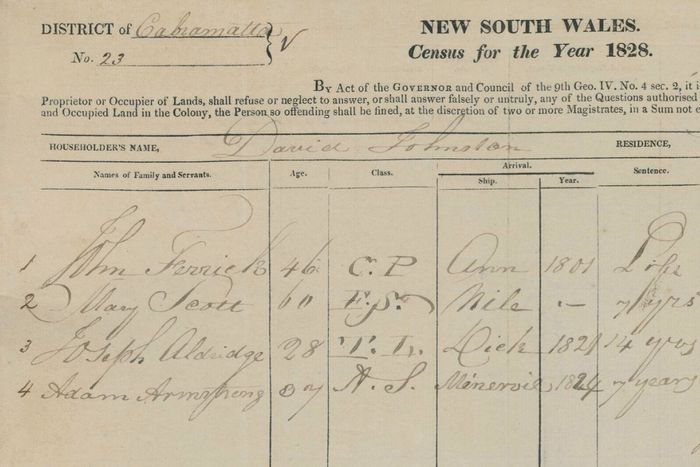 DISTRICT of Cabramatta
No. 23
NEW SOUTH WALES.
Census for the Year 1828.
BY Act of the GOVERNOR and Council of the 9th Geo. IV. No. 4 sec. 2, it i
Proprietor or Occupier of Lands, shall refuse or neglect to answer, or shall answer falsely or untruly, any of the Questions authorised
and Occupied Land in the Colony, the Person so offending shall be fined, at the discretion of two or more Magistrates, in a Sum not e
HOUSEHOLDER'S NAME, David Johnston RESIDENCE,
Names of Family and Servants. Age. Class. Arrival. Sentence.
Ship. Year.
1 John Ferrick 46 C. P Ann 1801 Life
2 Mary Scott 60 F.S. Nile — 7 yrs
3 Joseph Aldridge 28 T. L. Dick 1821 14 yrs
4 Adam Armstrong A. S. Minerva 1824 7 years